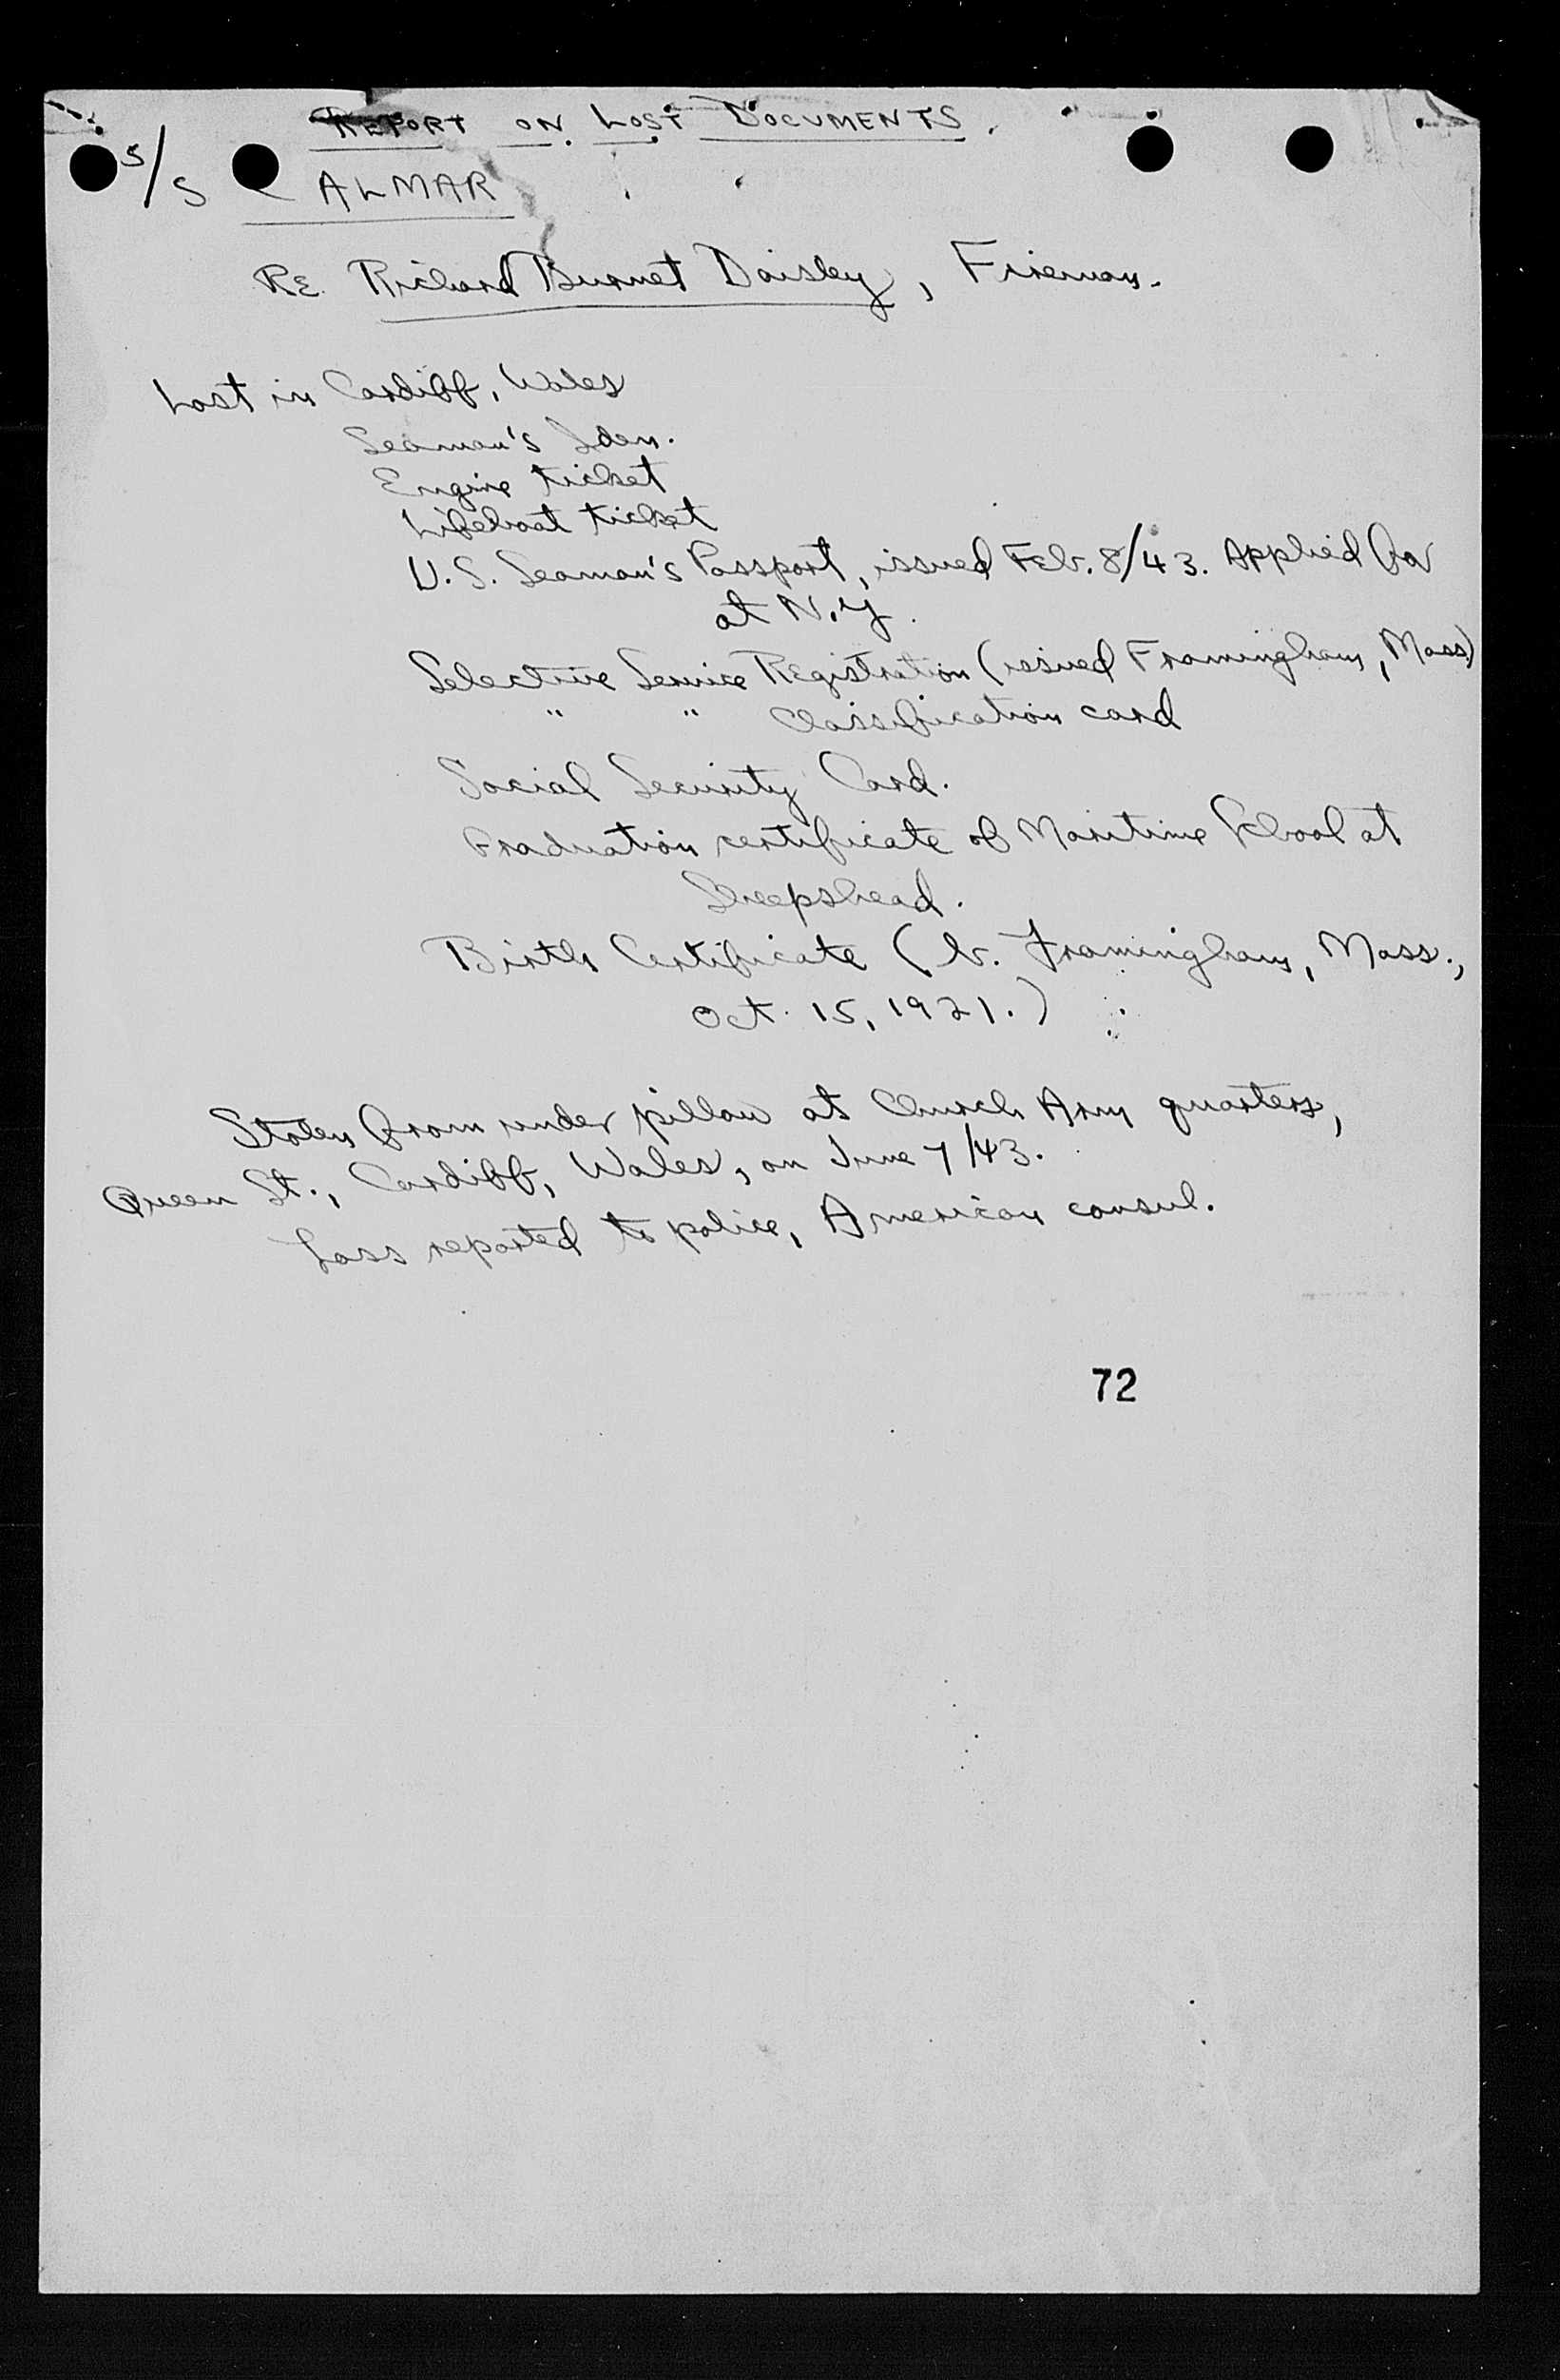 REPORT ON LOST DOCUMENTS.
S/S CALMAR
RE. Richard Burnet Daisley, Fireman.
Lost in Cardiff, Wales
Seaman's Iden.
Engine ticket
Lifeboat ticket
U.S. Seaman's Passport, issued Feb. 8/43. Applied for
at N.Y.
Selective Service Registration (issued Framingham, Mass.)
" " Classification card
Social Security Card.
Graduation certificate of Maritime School at
Sheepshead.
Birth Certificate (b. Framingham, Mass.,
Oct. 15, 1921.)
Stolen from under pillow at Church Army quarters,
Queen St., Cardiff, Wales, on June 7/43.
Loss reported to police, American consul.
72